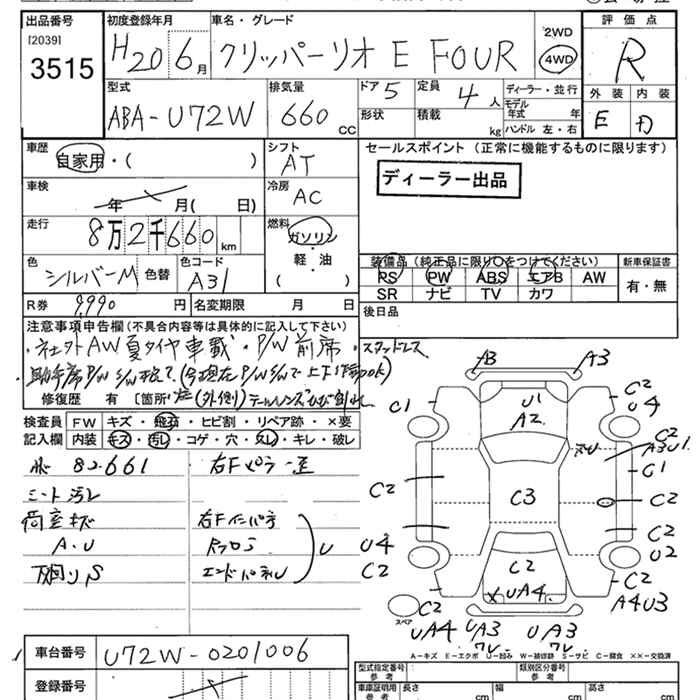 出品番号 初度登録年月 車名・グレード 評価点
[2039] 2WD
3515 H20 6月 クリッパーリオ E FOUR 4WD R
型式 排気量 ドア 5 定員 4人 ディーラー・並行 外装 内装
ABA-U72W 660 CC 形状 積載 kg モデル年式 年 E D
ハンドル 左・右
車歴 シフト セールスポイント (正常に機能するものに限ります)
自家用・( ) AT
車検 冷房 ディーラー出品
年 月( 日) AC
走行 燃料
8万2千660km ガソリン・軽・油 ( )
色 シルバーM 色替 色コード A31
装備品 (純正品に限り○をつけてください) 新車保証書
PS PW ABS エアB AW 有・無
SR ナビ TV カワ
R券 9,990円 名変期限 月 日 後日品
注意事項申告欄 (不具合内容等は具体的に記入して下さい)
・社外AW夏タイヤ車載・P/W前席・スタッドレス
修復歴 有 [箇所
検査員 FW キズ・飛石・ヒビ割・リペア跡・×要
記入欄 内装 キズ・汚レ・コゲ・穴・スレ・キレ・破レ
82,661
シート汚レ
荷室キズ 右Fインパネ
A.U U
下廻りS
AB A3
C1 U1 A2 C2 U4
C2 A3U1
C1
C2 C3 C2
C2
U4 U2
C2 C2 C2
XUA4. A4U3
スペア C2
UA4 UA3 UA3
A-キズ E-エクボ U-凹み W-補修跡 S-サビ C-腐食 ××-交換済
車台番号 U72W-0201006
登録番号
型式指定番号 参考 類別区分番号 参考
車庫証明用 参考 長さ cm 幅 cm 高さ cm